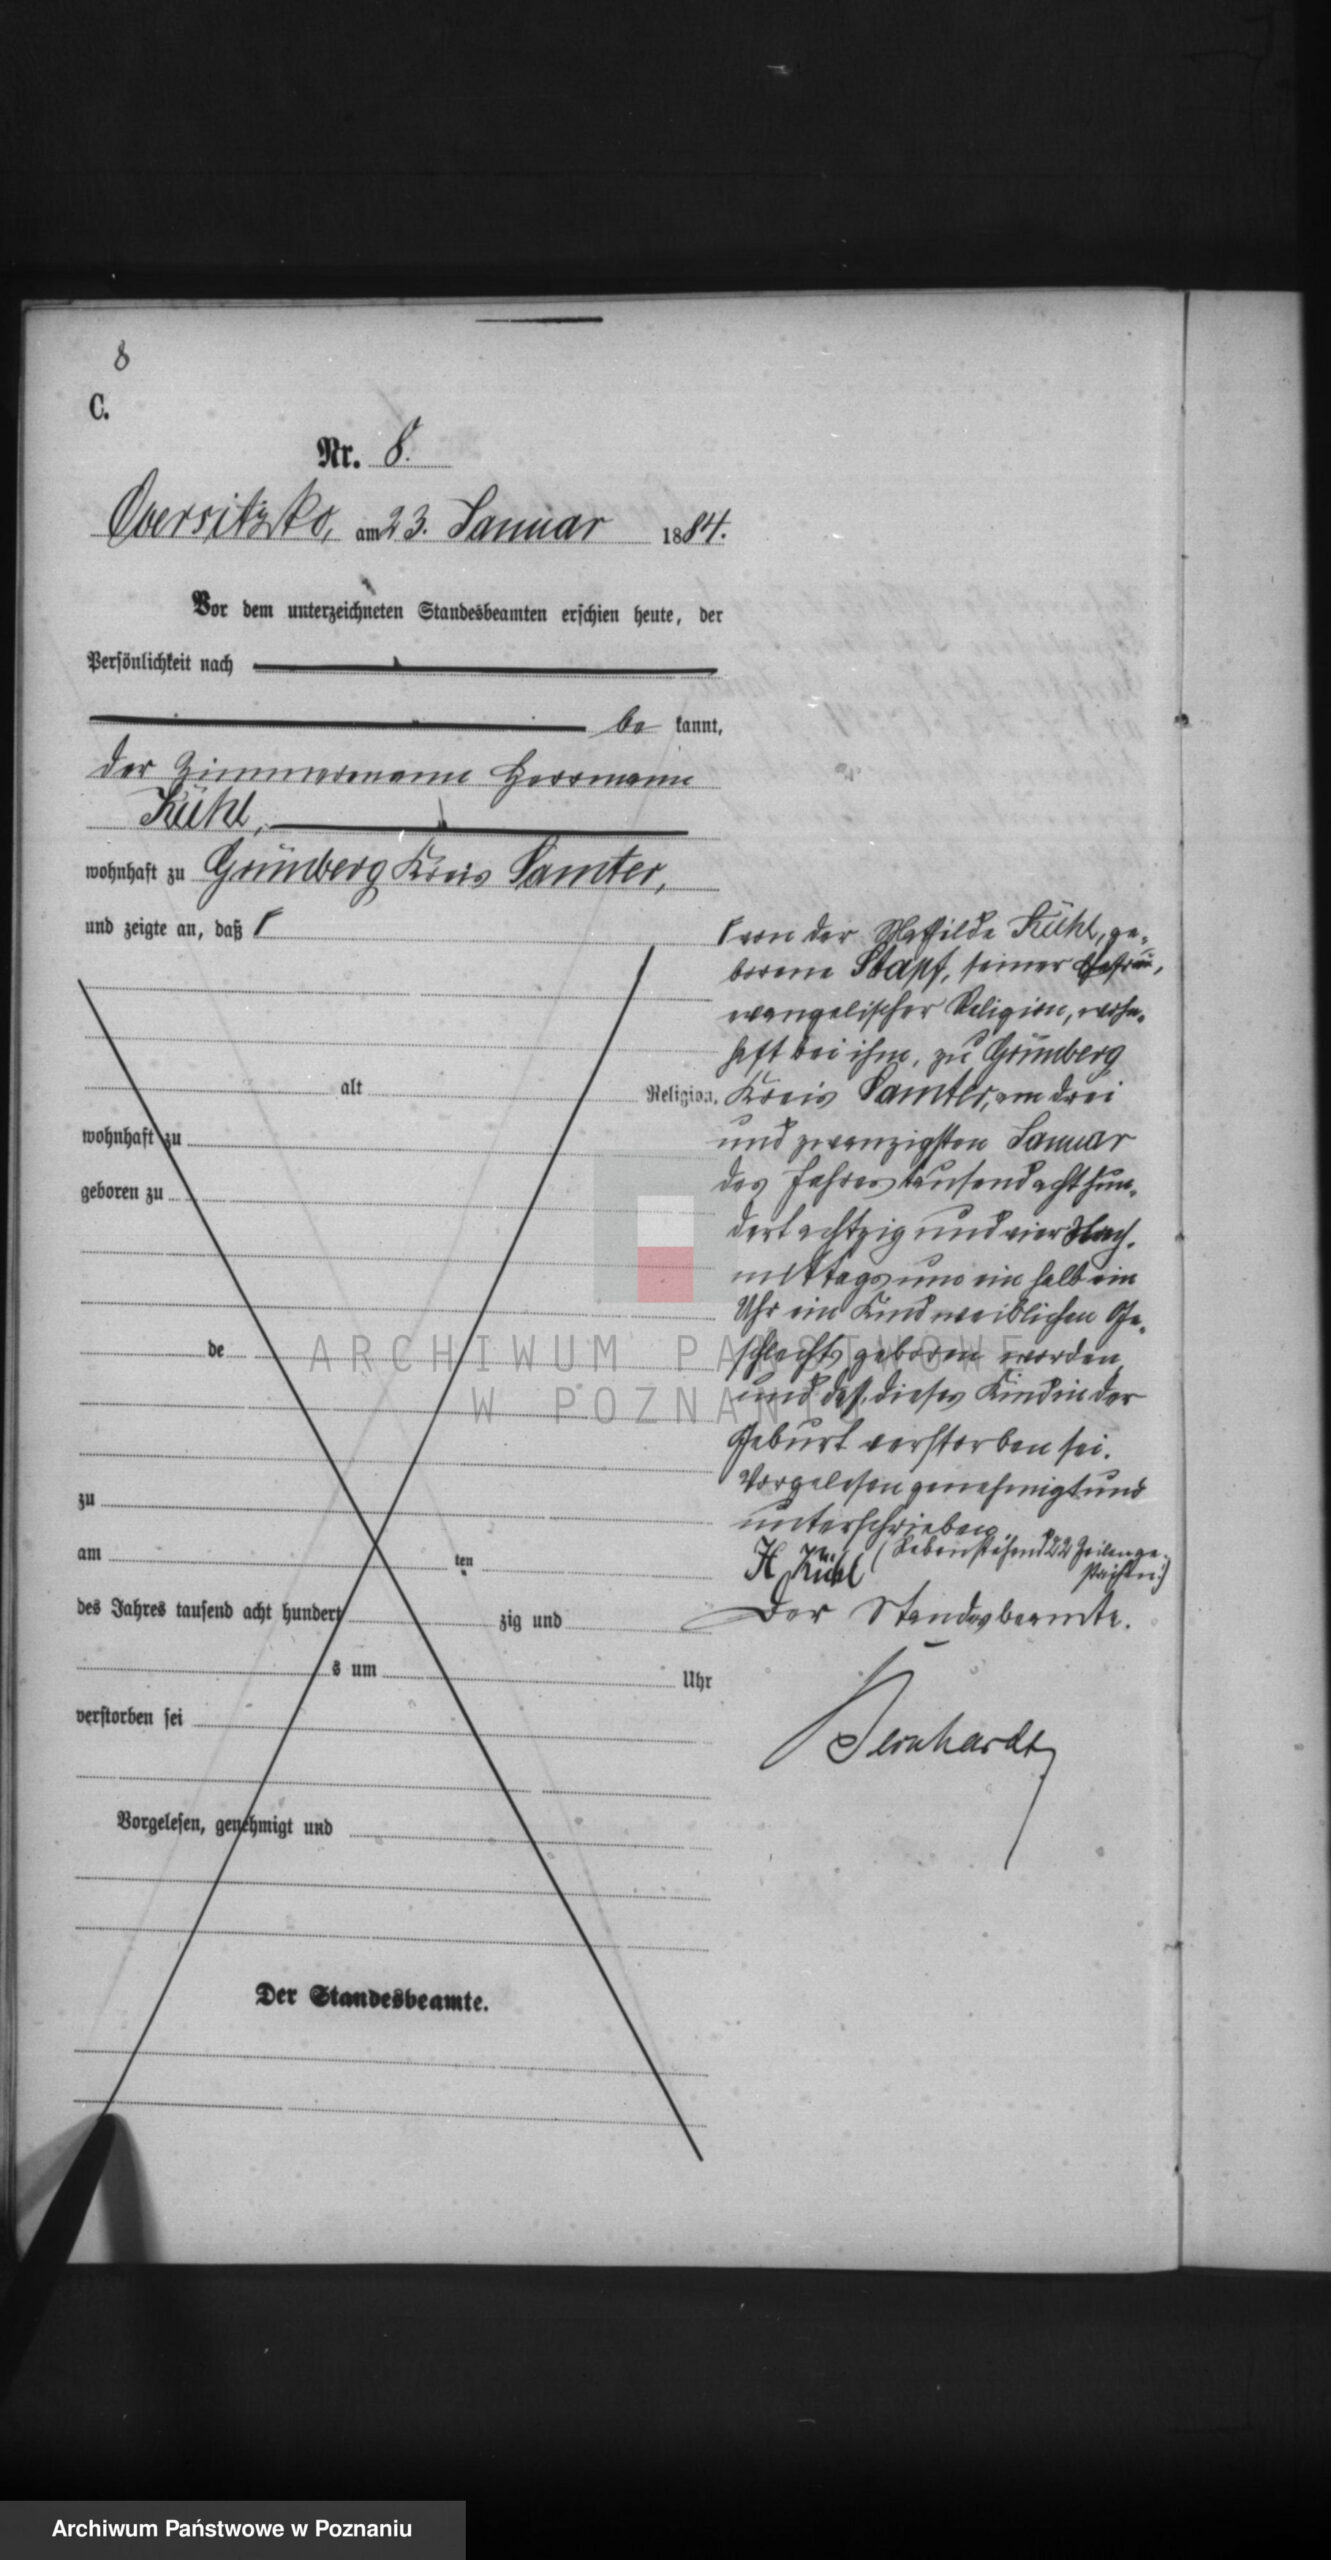 8
C.
Nr. 8.
Obersitzko, am 23. Januar 1884.
Vor dem unterzeichneten Standesbeamten erschien heute, der
Persönlichkeit nach
be kannt,
der Zimmermann Herrmann
Kühl,
wohnhaft zu Grünberg Kreis Samter,
und zeigte an, daß Γ
alt Religion,
wohnhaft zu
geboren zu
de
zu
am ten
des Jahres tausend acht hundert zig und
s um Uhr
verstorben sei
Vorgelesen, genehmigt und
Der Standesbeamte.
Γ von der Mathilde Kühl, ge-
borene Stapf, seiner Ehefrau,
evangelischer Religion, wohn-
haft bei ihm, zu Grünberg
Kreis Samter, am drei
und zwanzigsten Januar
des Jahres tausend acht hun-
dert achtzig und vier Nach-
mittags um ein halb ein
Uhr ein Kind weiblichen Ge-
schlechts geboren worden
und daß dieses Kind in der
Geburt verstorben sei.
Vorgelesen genehmigt und
unterschrieben
H Kühl
(Nebenstehend 22 Zeilen ge-
strichen)
Der Standesbeamte.
Bernhardt
ARCHIWUM PAŃSTWOWE
W POZNANIU
Archiwum Państwowe w Poznaniu